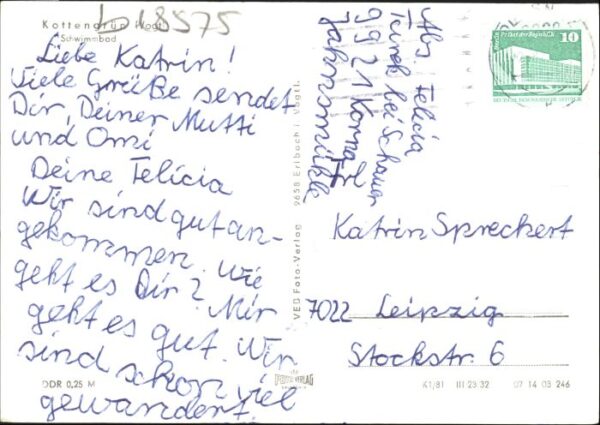 Kottengrün Vogtl.
Schwimmbad
b 18575
Liebe Katrin!
Viele Grüße sendet
Dir, Deiner Mutti
und Omi
Deine Felicia
Wir sind gut an-
gekommen. Wie
geht es Dir? Mir
geht es gut. Wir
sind schon viel
gewandert.
DDR 0,25 M
VEB Foto-Verlag 9658 Erlbach i. Vogtl.
FOTO-VERLAG
Abs. Felicia
bei Schauer
9921 Korna
Jahnsmühle
10
Palast der Republik
Frl.
Katrin Spreckert
7022 Leipzig
Stockstr. 6
K1/81 III 23 32 07 14 03 246